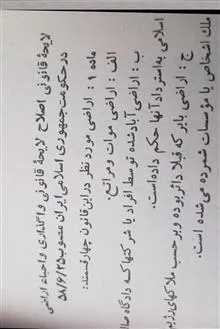 لایحهٔ قانونی اصلاح لایحهٔ قانونی واگذاری و احیاء اراضی
در حکومت جمهوری اسلامی ایران مصوب ۵۸/۶/۲۵
ماده ۱ : اراضی مورد نظر در این قانون چهار قسمتند:
الف : اراضی موات و مراتع.
ب : اراضی آباد شده توسط افراد یا شرکتها که دادگاه صالح
اسلامی به استرداد آنها حکم داده است.
ج : اراضی بایر که قبلا دائر بوده و برحسب ملاکهای رژیم
ملک اشخاص یا مؤسسات شمرده می‌شده است.